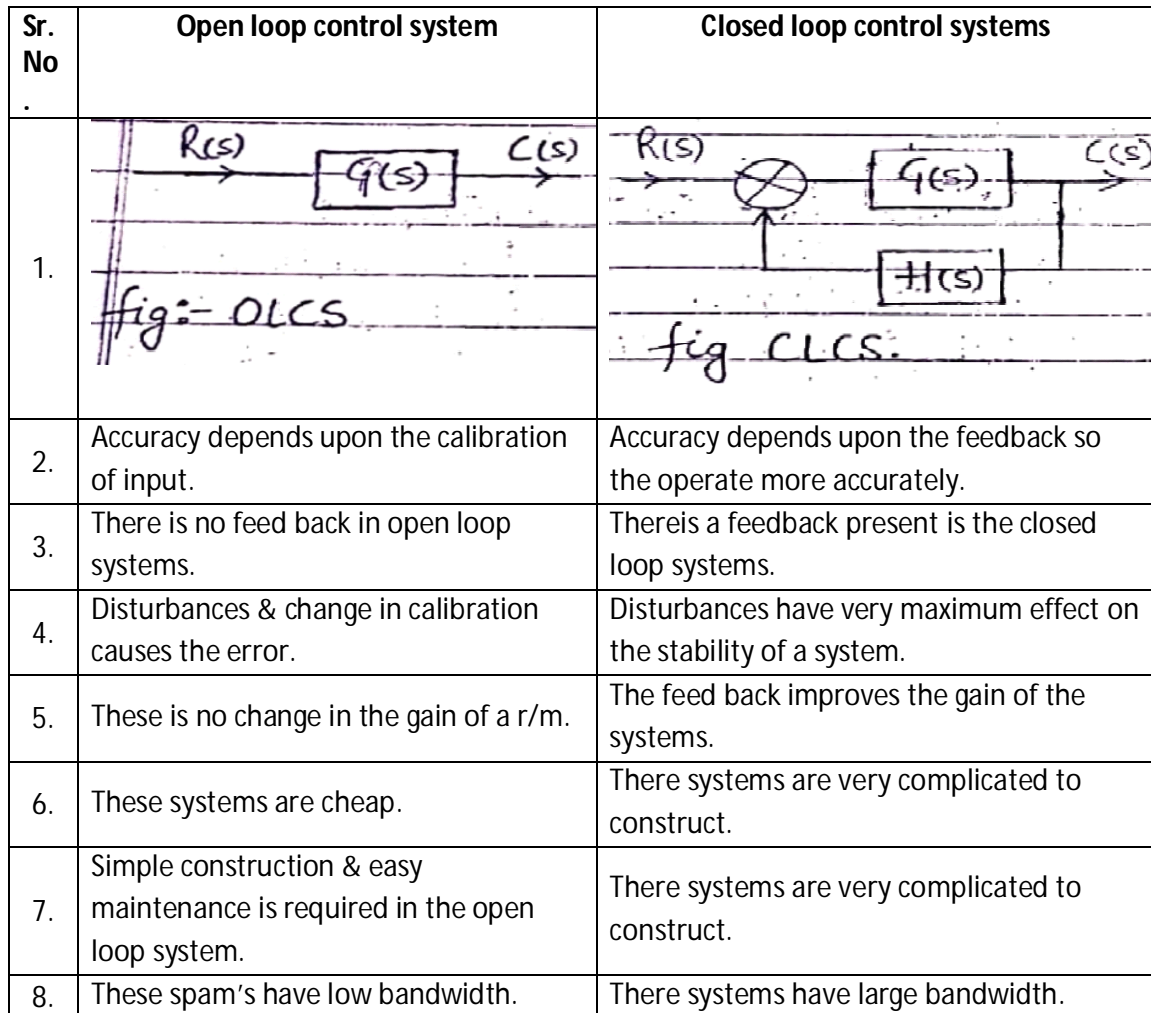 Sr.
No
.
Open loop control system
Closed loop control systems
1.
R(S)
G(S)
C(S)
fig:- OLCS
R(S)
G(S)
C(S)
H(S)
fig CLCS.
2.
Accuracy depends upon the calibration
of input.
Accuracy depends upon the feedback so
the operate more accurately.
3.
There is no feed back in open loop
systems.
Thereis a feedback present is the closed
loop systems.
4.
Disturbances & change in calibration
causes the error.
Disturbances have very maximum effect on
the stability of a system.
5.
These is no change in the gain of a r/m.
The feed back improves the gain of the
systems.
6.
These systems are cheap.
There systems are very complicated to
construct.
7.
Simple construction & easy
maintenance is required in the open
loop system.
There systems are very complicated to
construct.
8.
These spam's have low bandwidth.
There systems have large bandwidth.